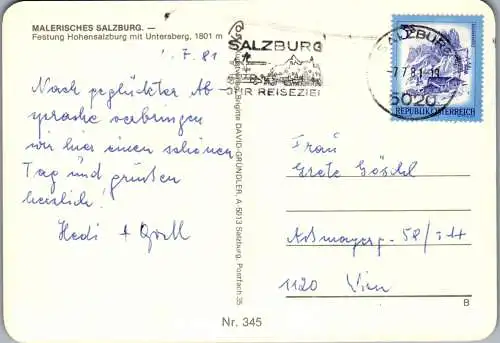 MALERISCHES SALZBURG. —
Festung Hohensalzburg mit Untersberg, 1801 m
7. 81
Nach geglückter Ab-
sprache verbringen
wir hier einen schönen
Tag und grüßen
herzlich!
Hedi +
SALZBURG
IHR REISEZIEL
SALZBURG
-7.7.81-19
5020
REPUBLIK ÖSTERREICH
Brigitte DAVID-GRÜNDLER, A 5013 Salzburg, Postfach 35
Frau
Grete Göschl
58/
1120 Wien
B
Nr. 345